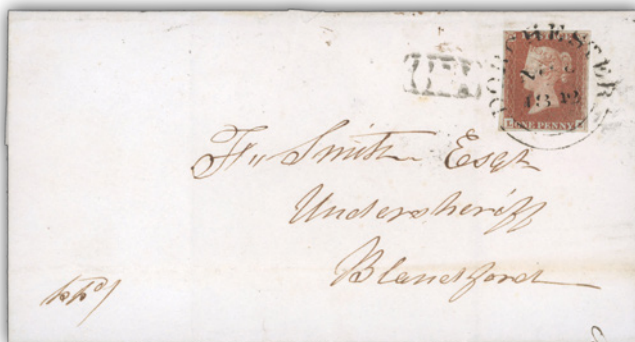 DORCHESTER
1842
ONE PENNY
F. Smith Esqr
Undersheriff
Blandford